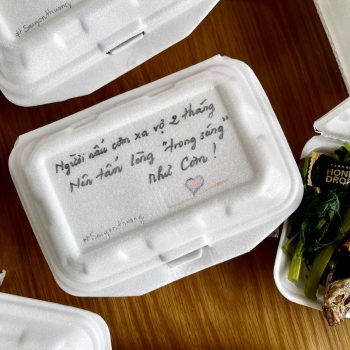 #Saigonthuong
Người nấu cơm xa vợ 2 tháng
Nên tấm lòng "trong sáng"
như Cơm !
#Saigonthuong
HONE
DROP